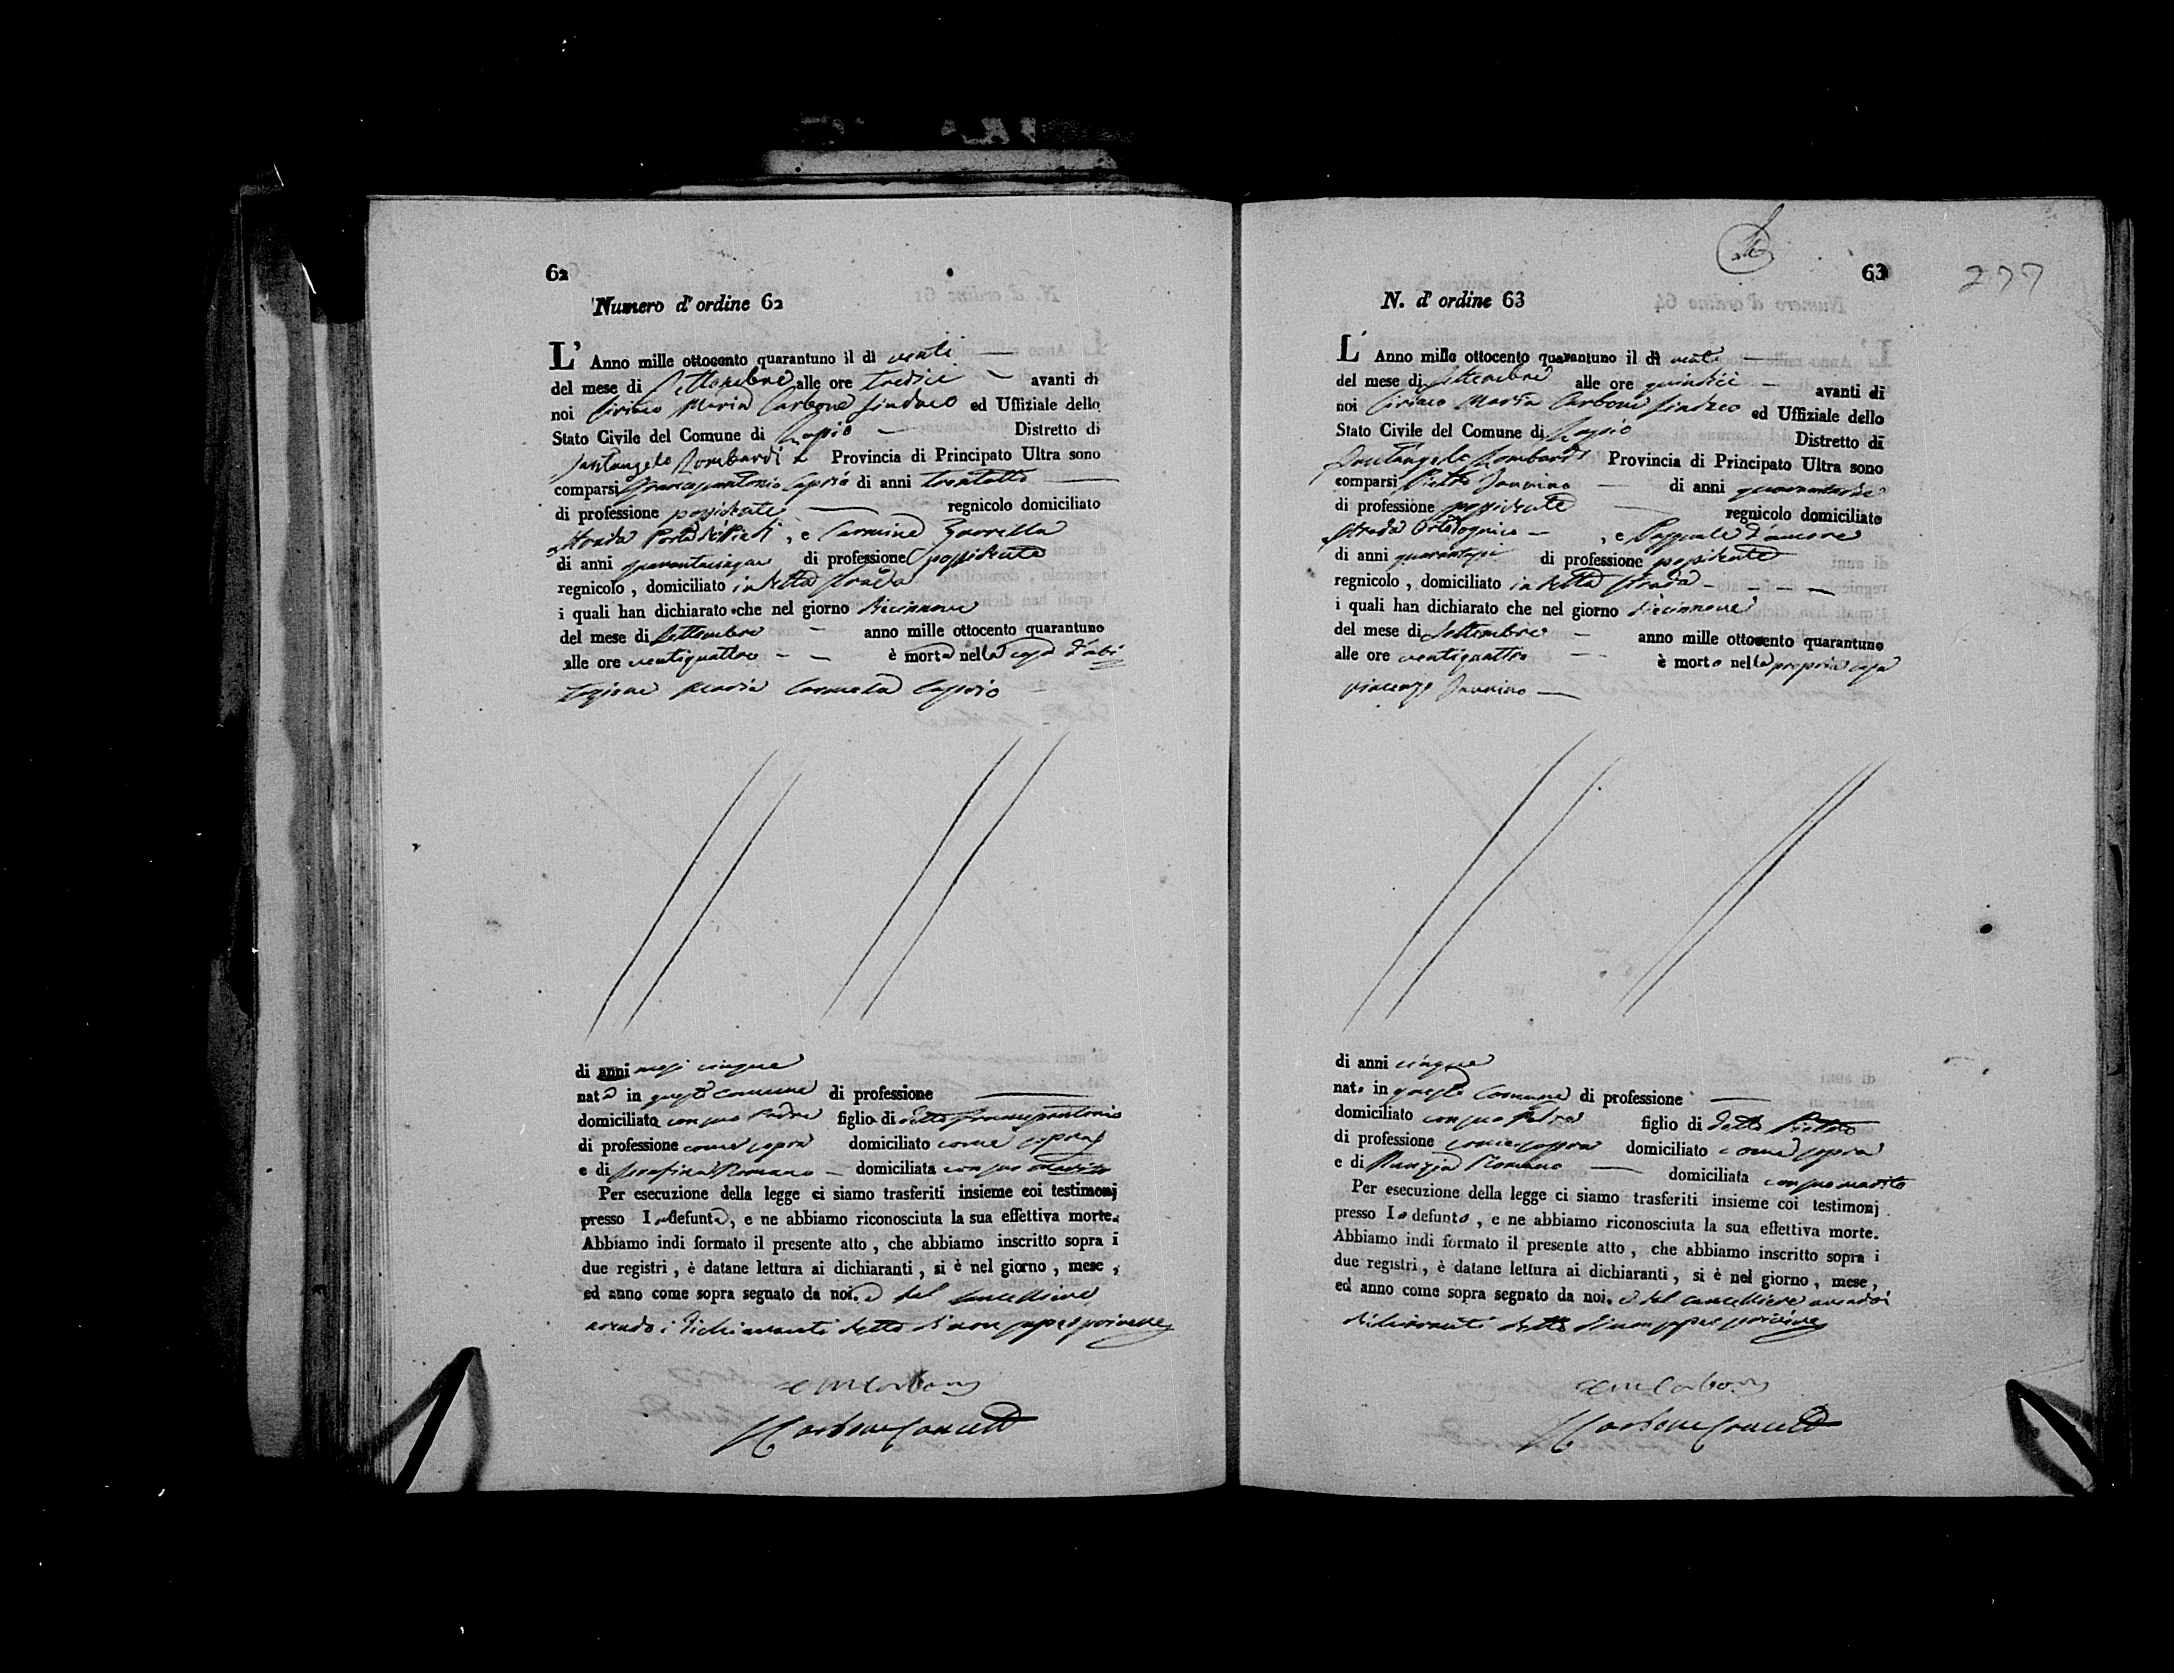 62
Numero d' ordine 62
L' Anno mille ottocento quarantuno il di venti
del mese di Settembre alle ore tredici avanti di
noi Ciriaco Maria Carbone Sindaco ed Uffiziale dello
Stato Civile del Comune di Lapio Distretto di
Santangelo Lombardi Provincia di Principato Ultra sono
comparsi Francescantonio Caprio di anni trentotto
di professione possidente regnicolo domiciliato
Strada Porta , e Carmine Zuorella
di anni quarantacinque di professione possidente
regnicolo , domiciliato in detta strada
i quali han dichiarato che nel giorno diecinnove
del mese di Settembre anno mille ottocento quarantuno
alle ore ventiquattro è morta nella casa d'abi
tazione Maria Carmela Caprio
di anni mesi cinque
nata in questo comune di professione
domiciliata con suo Padre figlia di detto Francescantonio
di professione come sopra domiciliato come sopra
e di Serafina Romano domiciliata con suo marito
Per esecuzione della legge ci siamo trasferiti insieme coi testimonj
presso la defunta, e ne abbiamo riconosciuta la sua effettiva morte.
Abbiamo indi formato il presente atto , che abbiamo inscritto sopra i
due registri , è datane lettura ai dichiaranti , si è nel giorno , mese ,
ed anno come sopra segnato da noi. e dal Cancelliere
avendo i dichiaranti detto di non saper scrivere
C M Carbone
Carbone Cancell
63
277
N. d' ordine 63
L' Anno mille ottocento quarantuno il di venti
del mese di Settembre alle ore quindici avanti di
noi Ciriaco Maria Carbone Sindaco ed Uffiziale dello
Stato Civile del Comune di Lapio Distretto di
Santangelo Lombardi Provincia di Principato Ultra sono
comparsi Pietro Iannino di anni
di professione possidente regnicolo domiciliato
Strada , e Pasquale d'amore
di anni quarantasei di professione possidente
regnicolo , domiciliato in detta strada
i quali han dichiarato che nel giorno diecinnove
del mese di Settembre anno mille ottocento quarantuno
alle ore ventiquattro è morto nella propria casa
Vincenzo Iannino
di anni cinque
nato in questo Comune di professione
domiciliato con suo Padre figlio di detto Pietro
di professione come sopra domiciliato come sopra
e di Nunzia Romano domiciliata con suo marito
Per esecuzione della legge ci siamo trasferiti insieme coi testimonj
presso lo defunto , e ne abbiamo riconosciuta la sua effettiva morte.
Abbiamo indi formato il presente atto , che abbiamo inscritto sopra i
due registri , è datane lettura ai dichiaranti , si è nel giorno , mese ,
ed anno come sopra segnato da noi. e dal Cancelliere avendo i
dichiaranti detto di non saper scrivere
C M Carbone
Carbone Cancell